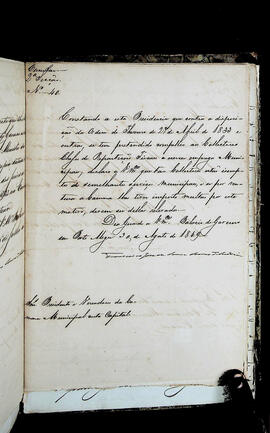 2ª Secção
Nº 40.
Constando a esta Presidencia que contra a disposi-
ção da Ordem do Thesouro de 27 de Abril de 1833 e
outras, se tem pretendido compellir ao Collector e
Chefe da Repartição Fiscal a exercer empregos Mu-
nicipaes, declaro a Vmces que taes Collectores estão isemp-
tos de semelhante serviço municipal, e se por ven-
tura a Camara lhes tem imposto multas por este
motivo, devem ser dellas relevados.
Deos Guarde a Vmces Palacio do Governo
em Porto Alegre 30 de Agosto de 1849
Snrs Presidente e Vereadores da Ca-
mara Municipal desta Capital